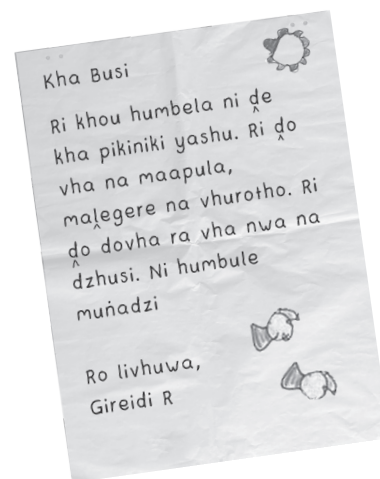 Kha Busi
Ri khou humbela ni ḓe
kha pikiniki yashu. Ri ḓo
vha na maapula,
maḽegere na vhurotho. Ri
ḓo dovha ra vha nwa na
dzhusi. Ni humbule
muṅadzi
Ro livhuwa,
Gireidi R